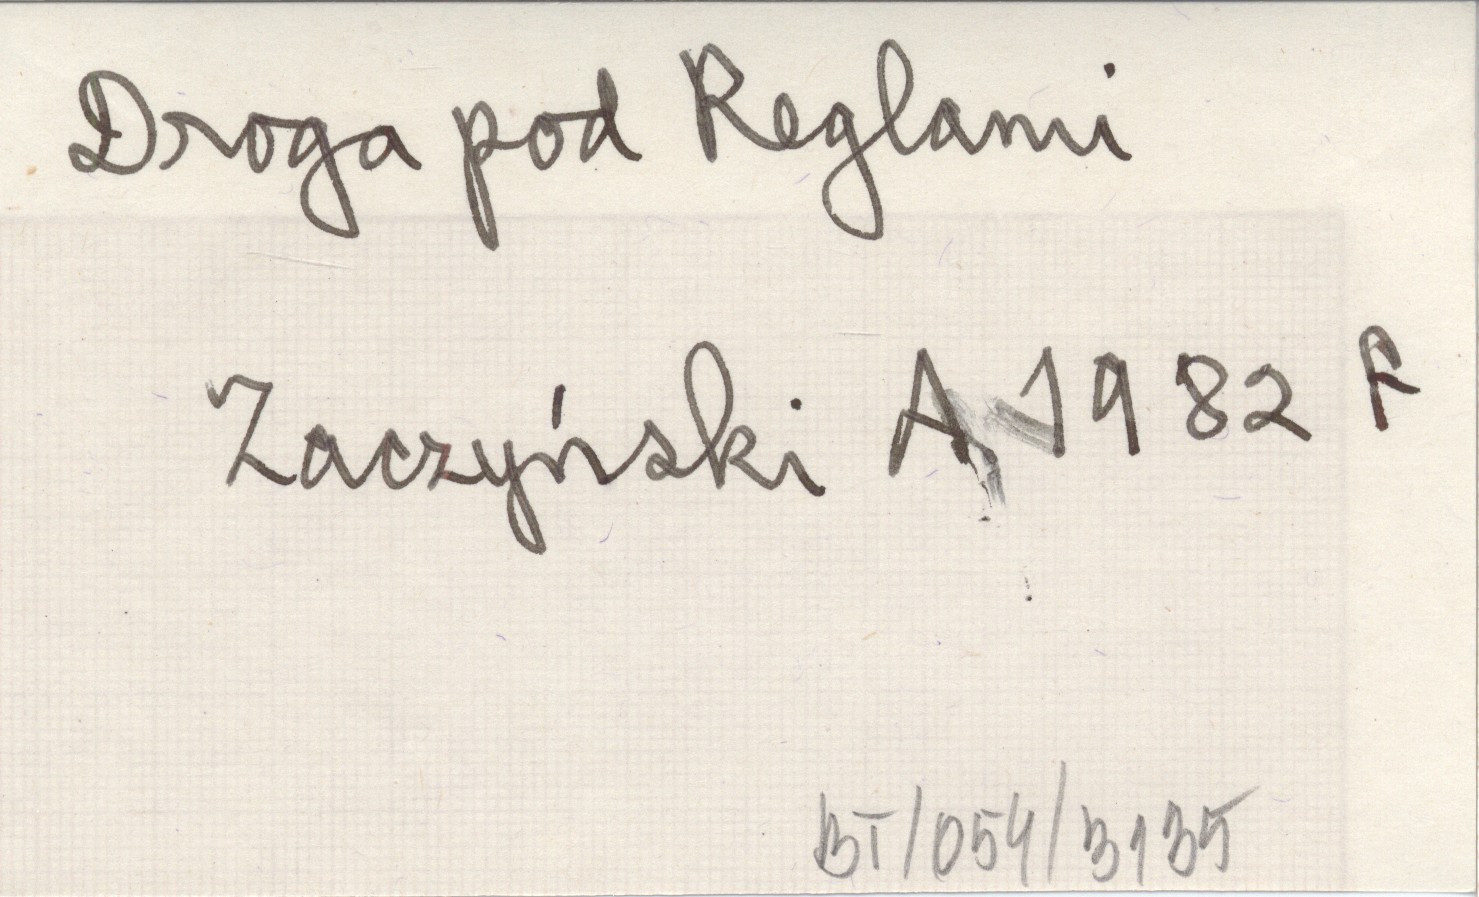 Droga pod Reglami
Zaczyński A. 1982 R
BT/054/3135